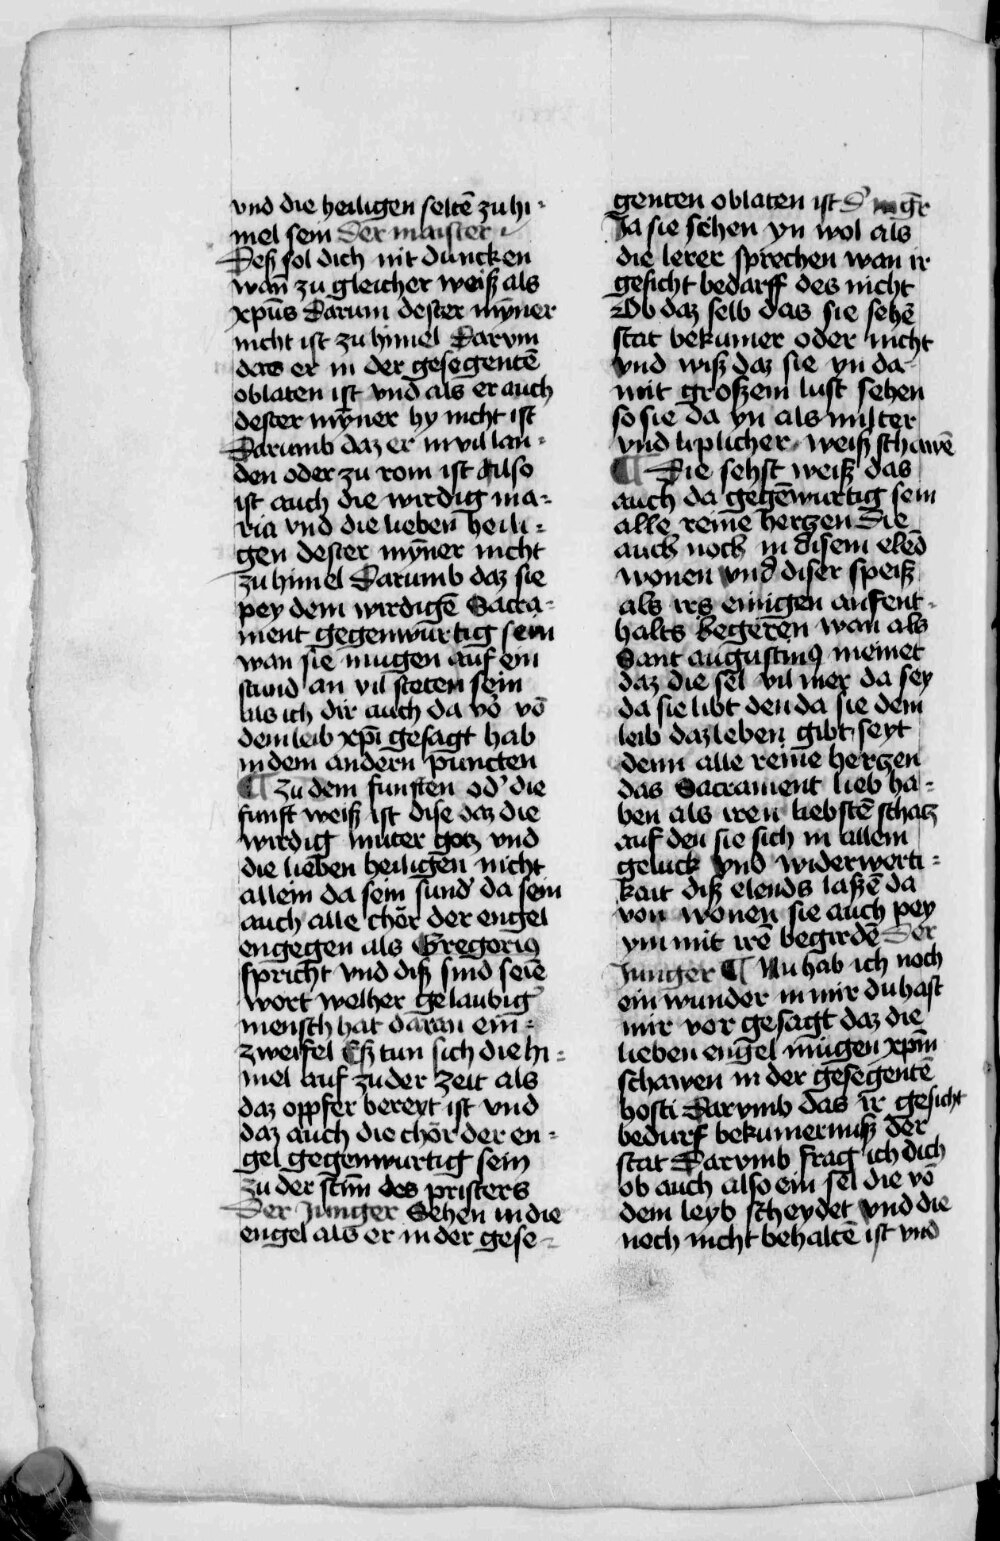 vnd die heiligen seltē zu hi-
mel sein Der maister
Deß sol dich nit duncken
wan̄ zu gleicher weiß als
xpūs Darum dester mȳner
nicht ist zu himel Darvm
das er in der gesegentē
oblaten ist vnd als er auch
dester mȳner hy nicht ist
Darumb daz er in vil lan-
den oder zu rom ist Also
ist auch die wirdig ma-
ria vnd die lieben heili-
gen dester mȳner nicht
zu himel Darumb daz sie
pey dem wirdigē Sacra-
ment gegenwurtig sein
wan sie mugen auf ein
stund an vil steten sein
als ich dir auch da vō vō
dem leib xp̄i gesagt hab
in dem andern puncten
¶ Zu dem funften od' die
funft weiß ist dise daz die
wirdig muter gotz vnd
die lieben heiligen nicht
allein da sein sund' da sein
auch alle chör der engel
engegen als Gregoriꝰ
spricht vnd diß sind seīe
wort welher gelaubig'
mensch hat daran ein-
zweifel Eß tun sich die hi-
mel auf zu der zeit als
daz oppfer bereyt ist vnd
daz auch die chör der en-
gel gegenwurtig sein
zu der stim̄ des pristers
Der Junger Sehen in die
engel als er in der gese-
genten oblaten ist D' mgr̄
Ja sie sehen yn wol als
die lerer sprechen wan ir
gesicht bedarff des nicht
Ob daz selb das sie sehē
stat bekumer oder nicht
vnd wiß daz sie yn da
mit großem lust sehen
so sie da yn als milter
vnd liplicher weiß schawē
¶ Die sehst weiß das
auch da gegēwurtig sein
alle reine hertzen Die
auch noch in disem elēd
wonen vnd diser speiß
als irs einigen aufent-
halts begeren wan als
Sant augustinꝰ meinet
daz die sel vil mer da sey
da sie libt den da sie dem
leib daz leben gibt seyt
denn alle reine hertzen
das Sacrament lieb ha-
ben als iren liebstē schatz
auf den sie sich in allem
geluck vnd widerwerti-
kait diß elends laßē da
von wonen sie auch pey
ym mit irē begirdē Der
Junger ¶ Nu hab ich noch
ein wunder in mir du hast
mir vor gesagt daz die
lieben engel mugen xpm̄
schawen in der gesegentē
hosti Darvmb das ir gesicht
bedurf bekumernuß der
stat Darvmb frag ich dich
ob auch also ein sel die vō
dem leyb scheydet vnd die
noch nicht behaltē ist vnd